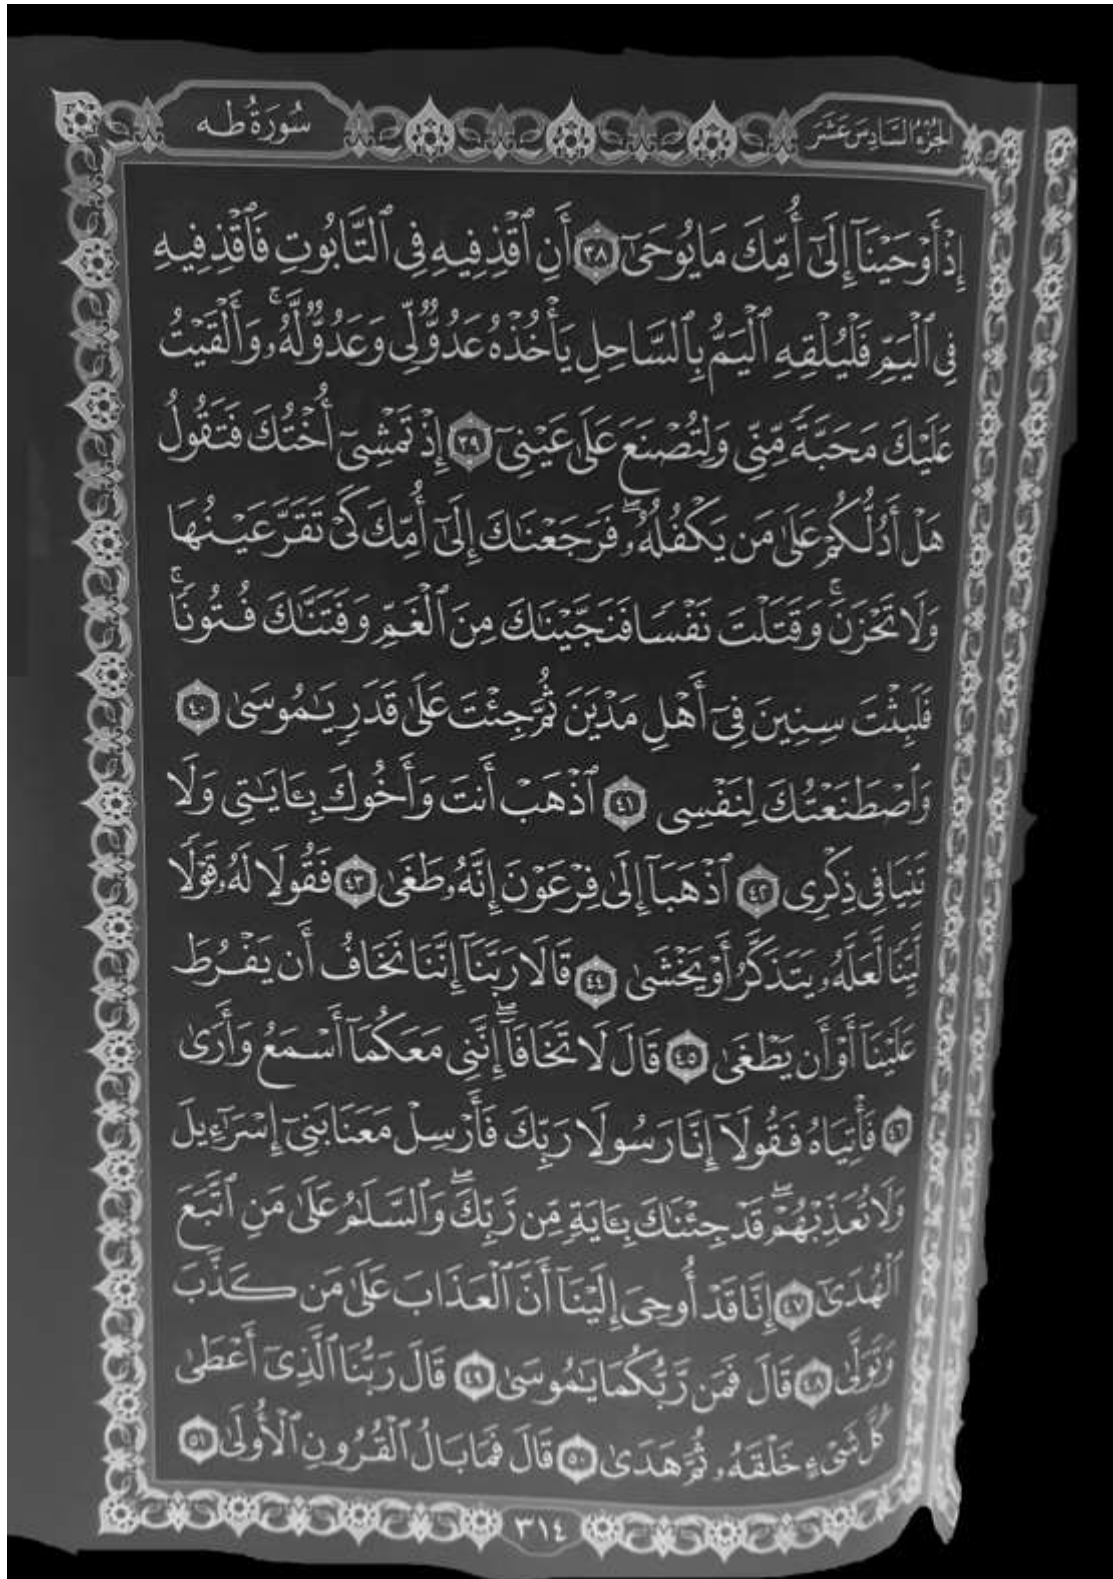 الجزء السادس عشر
سورة طه
إِذْ أَوْحَيْنَآ إِلَىٰٓ أُمِّكَ مَا يُوحَىٰٓ ٣٨ أَنِ ٱقْذِفِيهِ فِى ٱلتَّابُوتِ فَٱقْذِفِيهِ
فِى ٱلْيَمِّ فَلْيُلْقِهِ ٱلْيَمُّ بِٱلسَّاحِلِ يَأْخُذْهُ عَدُوٌّ لِّى وَعَدُوٌّ لَّهُۥۚ وَأَلْقَيْتُ
عَلَيْكَ مَحَبَّةً مِّنِّى وَلِتُصْنَعَ عَلَىٰ عَيْنِىٓ ٣٩ إِذْ تَمْشِىٓ أُخْتُكَ فَتَقُولُ
هَلْ أَدُلُّكُمْ عَلَىٰ مَن يَكْفُلُهُۥۖ فَرَجَعْنَٰكَ إِلَىٰٓ أُمِّكَ كَىْ تَقَرَّ عَيْنُهَا
وَلَا تَحْزَنَۚ وَقَتَلْتَ نَفْسًا فَنَجَّيْنَٰكَ مِنَ ٱلْغَمِّ وَفَتَنَّٰكَ فُتُونًاۚ
فَلَبِثْتَ سِنِينَ فِىٓ أَهْلِ مَدْيَنَ ثُمَّ جِئْتَ عَلَىٰ قَدَرٍ يَٰمُوسَىٰ ٤٠
وَٱصْطَنَعْتُكَ لِنَفْسِى ٤١ ٱذْهَبْ أَنتَ وَأَخُوكَ بِـَٔايَٰتِى وَلَا
تَنِيَا فِى ذِكْرِى ٤٢ ٱذْهَبَآ إِلَىٰ فِرْعَوْنَ إِنَّهُۥ طَغَىٰ ٤٣ فَقُولَا لَهُۥ قَوْلًا
لَّيِّنًا لَّعَلَّهُۥ يَتَذَكَّرُ أَوْ يَخْشَىٰ ٤٤ قَالَا رَبَّنَآ إِنَّنَا نَخَافُ أَن يَفْرُطَ
عَلَيْنَآ أَوْ أَن يَطْغَىٰ ٤٥ قَالَ لَا تَخَافَآۖ إِنَّنِى مَعَكُمَآ أَسْمَعُ وَأَرَىٰ
٤٦ فَأْتِيَاهُ فَقُولَآ إِنَّا رَسُولَا رَبِّكَ فَأَرْسِلْ مَعَنَا بَنِىٓ إِسْرَٰٓءِيلَ
وَلَا تُعَذِّبْهُمْۖ قَدْ جِئْنَٰكَ بِـَٔايَةٍ مِّن رَّبِّكَۖ وَٱلسَّلَٰمُ عَلَىٰ مَنِ ٱتَّبَعَ
ٱلْهُدَىٰٓ ٤٧ إِنَّا قَدْ أُوحِىَ إِلَيْنَآ أَنَّ ٱلْعَذَابَ عَلَىٰ مَن كَذَّبَ
وَتَوَلَّىٰ ٤٨ قَالَ فَمَن رَّبُّكُمَا يَٰمُوسَىٰ ٤٩ قَالَ رَبُّنَا ٱلَّذِىٓ أَعْطَىٰ
كُلَّ شَىْءٍ خَلْقَهُۥ ثُمَّ هَدَىٰ ٥٠ قَالَ فَمَا بَالُ ٱلْقُرُونِ ٱلْأُولَىٰ ٥١
٣١٤